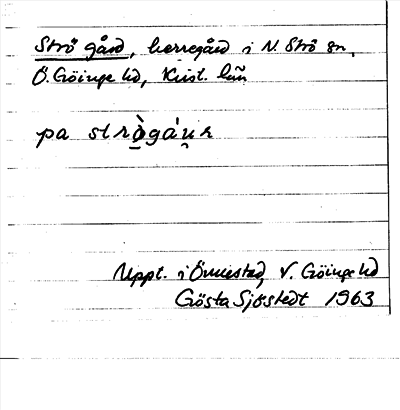 Strö gård, herregård i N. Strö sn,
Ö. Göinge hd, Krist. län
pa strò̱gáṷʀ
Uppt. i Önnestad, V. Göinge hd
Gösta Sjöstedt 1963